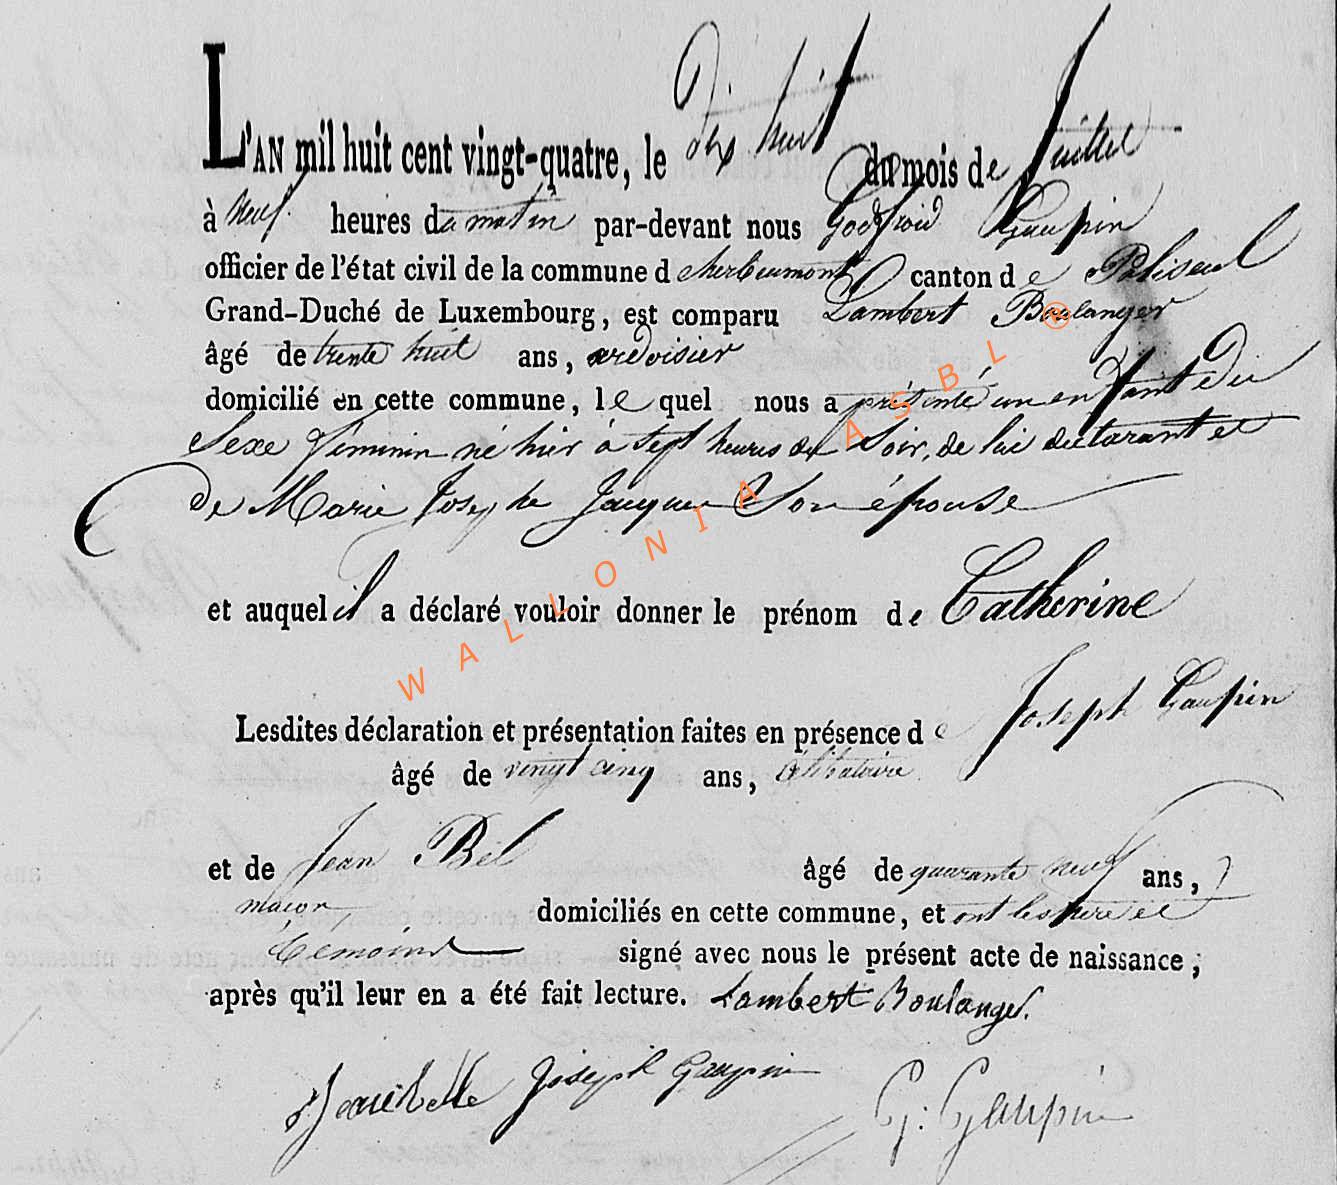 L'AN mil huit cent vingt-quatre, le dix huit du mois de Juillet
à neuf heures du matin par-devant nous Godfroid Gaupin
officier de l'état civil de la commune d'herbeumont canton de Paliseul
Grand-Duché de Luxembourg, est comparu Lambert Boulanger
âgé de trente huit ans, ardoisier
domicilié en cette commune, lequel nous a présenté un enfant du
Sexe féminin né hier à sept heures du Soir, de lui declarant et
de Marie Josephe Jacques Son épouse
et auquel il a déclaré vouloir donner le prénom de Catherine
Lesdites déclaration et présentation faites en présence de Joseph Gaupin
âgé de vingt cinq ans, Célibataire
et de Jean Bel âgé de quarante neuf ans,
macon domiciliés en cette commune, et ont les pere et
temoins signé avec nous le présent acte de naissance,
après qu'il leur en a été fait lecture. Lambert Boulanger.
Joseph Gaupin
G: Gaupin
WALLONIA ASBL ®